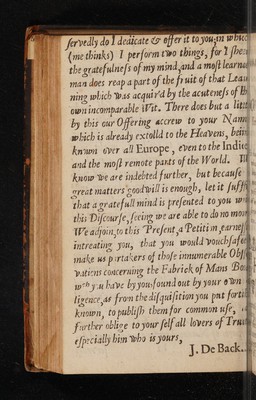 servedly do I dedicate & offer it to you, in which
(me thinks) I perform two things, for I shew
the gratefulness of my mind, and a most learned
man does reap a part of the fruit of that Lear-
ning which was acquir'd by the acuteness of his
own incomparable Wit. There does but a little
by this our Offering accrew to your Name
which is already extolld to the Heavens, being
known over all Europe, even to the Indies
and the most remote parts of the World.
know we are indebted further, but because
great matters goodwill is enough, let it suffice
that a gratefull mind is presented to you
this Discourse, seeing we are able to do no more
We adjoin, to this Present, a Petition, earnestly
intreating you, that you would vouchsafe
make us partakers of those innumerable Obser-
vations concerning the Fabrick of Mans Body
wch you have by you found out by your own
ligence, as from the disquisition you put forth
known, to publish them for common use,
further oblige to your self all lovers of Truth
especially him who is yours,
J. De Back.